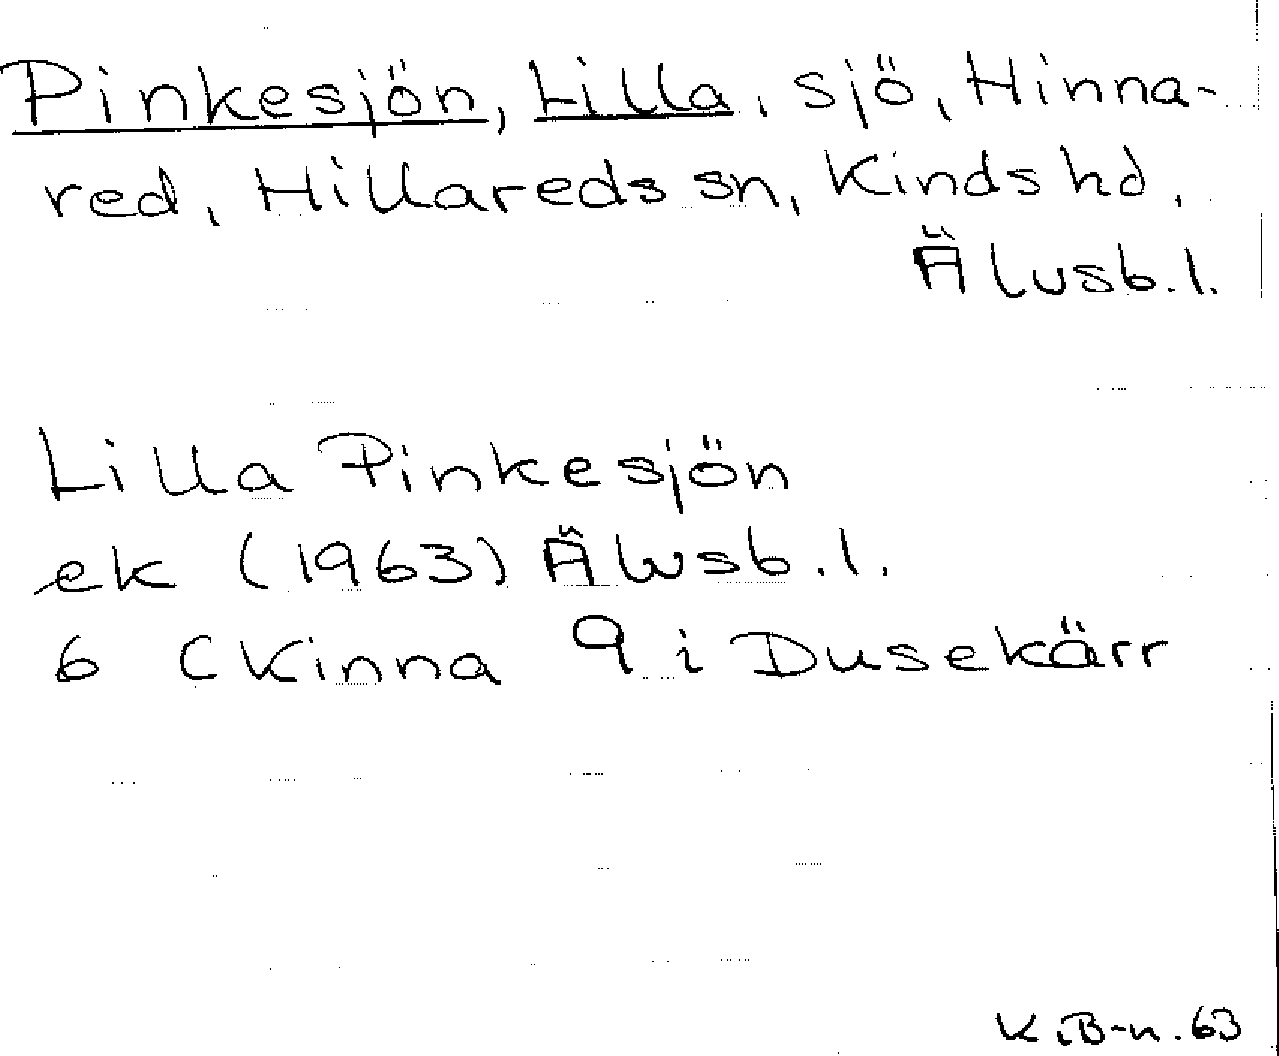 Pinkesjön, Lilla, sjö, Hinna-
red, Hillareds sn, Kinds hd,
Älvsb.l.
Lilla Pinkesjön
ek (1963) Älvsb.l.
6 C Kinna 9 i Dusekärr
K.B-n.63